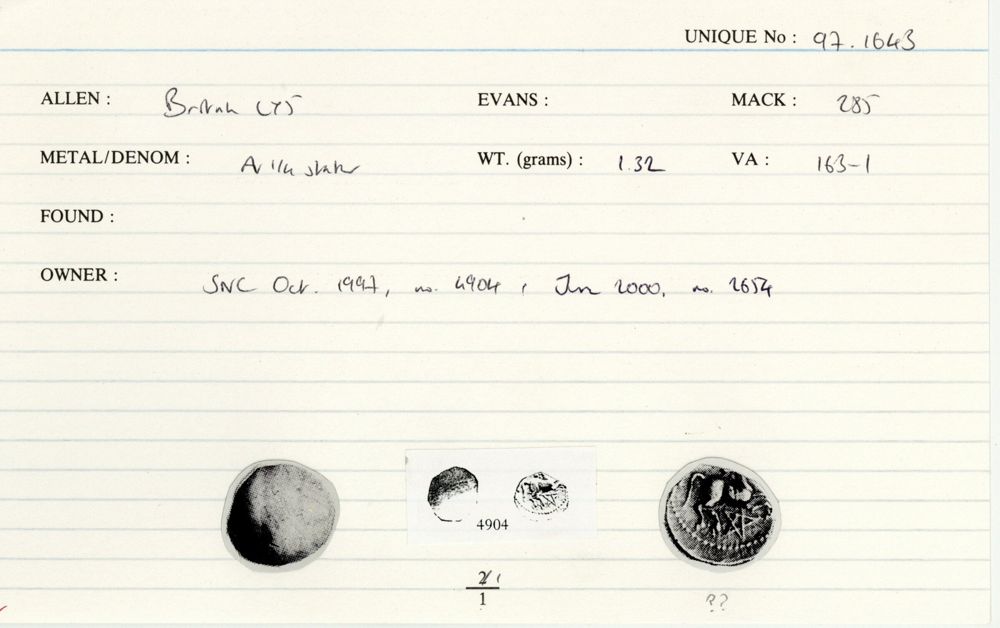 UNIQUE No : 97.1643
ALLEN : British LY5 EVANS : MACK : 285
METAL/DENOM : AV 1/4 stater WT. (grams) : 1.32 VA : 163-1
FOUND :
OWNER : SNC Oct. 1997, no. 4904 ; June 2000, no. 2654
4904
2/1
1
??